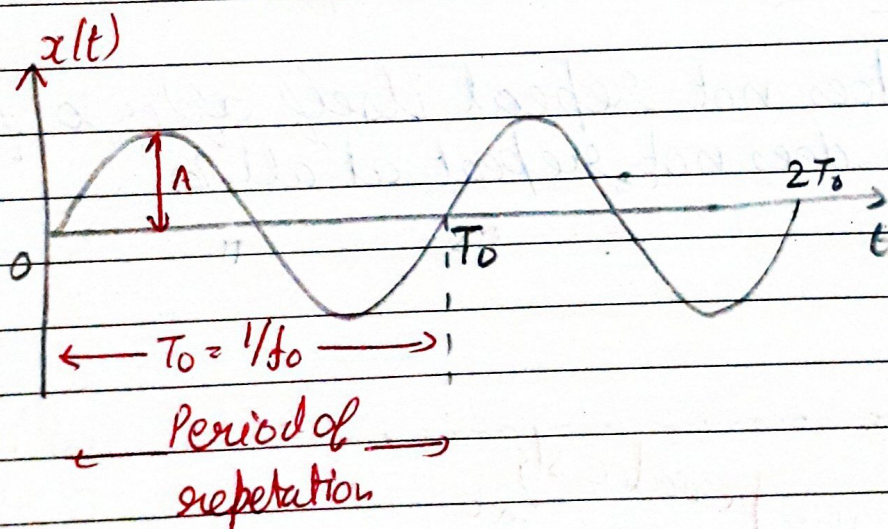 x(t)
A
2T₀
0
T₀
t
T₀ = 1/f₀
Period of
repetation